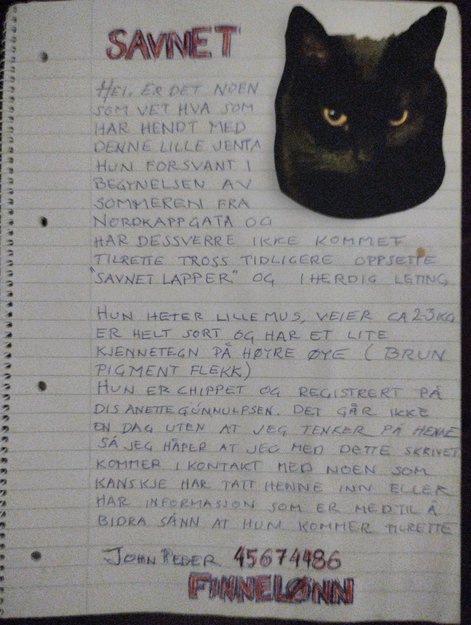 SAVNET
HEI, ER DET NOEN
SOM VET HVA SOM
HAR HENDT MED
DENNE LILLE JENTA
HUN FORSVANT I
BEGYNELSEN AV
SOMMEREN FRA
NORDKAPPGATA OG
HAR DESSVERRE IKKE KOMMET
TILRETTE TROSS TIDLIGERE OPPSETTE
"SAVNET LAPPER" OG IHERDIG LETING
HUN HETER LILLEMUS, VEIER CA 2-3 KG
ER HELT SORT OG HAR ET LITE
KJENNETEGN PÅ HØYRE ØYE (BRUN
PIGMENT FLEKK)
HUN ER CHIPPET OG REGISTRERT PÅ
DIS ANETTE GUNNULFSEN. DET GÅR IKKE
EN DAG UTEN AT JEG TENKER PÅ HENNE
SÅ JEG HÅPER AT JEG MED DETTE SKRIVET
KOMMER I KONTAKT MED NOEN SOM
KANSKJE HAR TATT HENNE INN ELLER
HAR INFORMASJON SOM ER MED TIL Å
BIDRA SÅNN AT HUN KOMMER TILRETTE
JOHN PEDER 45674486
FINNELØNN